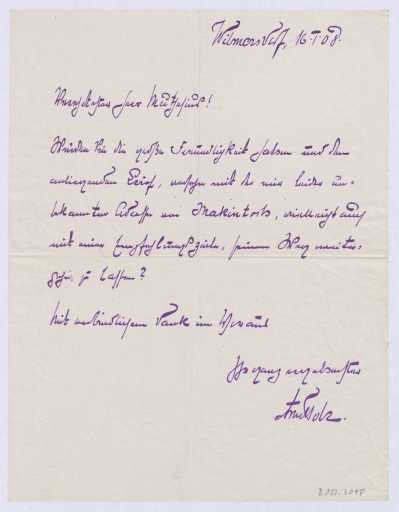 Wilmersdorf, 16.I.08.
Verehrtester Herr Muthesius!
Würden Sie die große Freundligkeit haben und den
anliegenden Brief, versehen mit der mir leider un-
bekannten Adresse von Makintosh, vielleicht auch
mit einer Empfehlungszeile, seinen Weg weiter-
gehen zu lassen?
Mit verbindlichem Dank im Voraus
Ihr ganz ergebenster
Arno Holz.